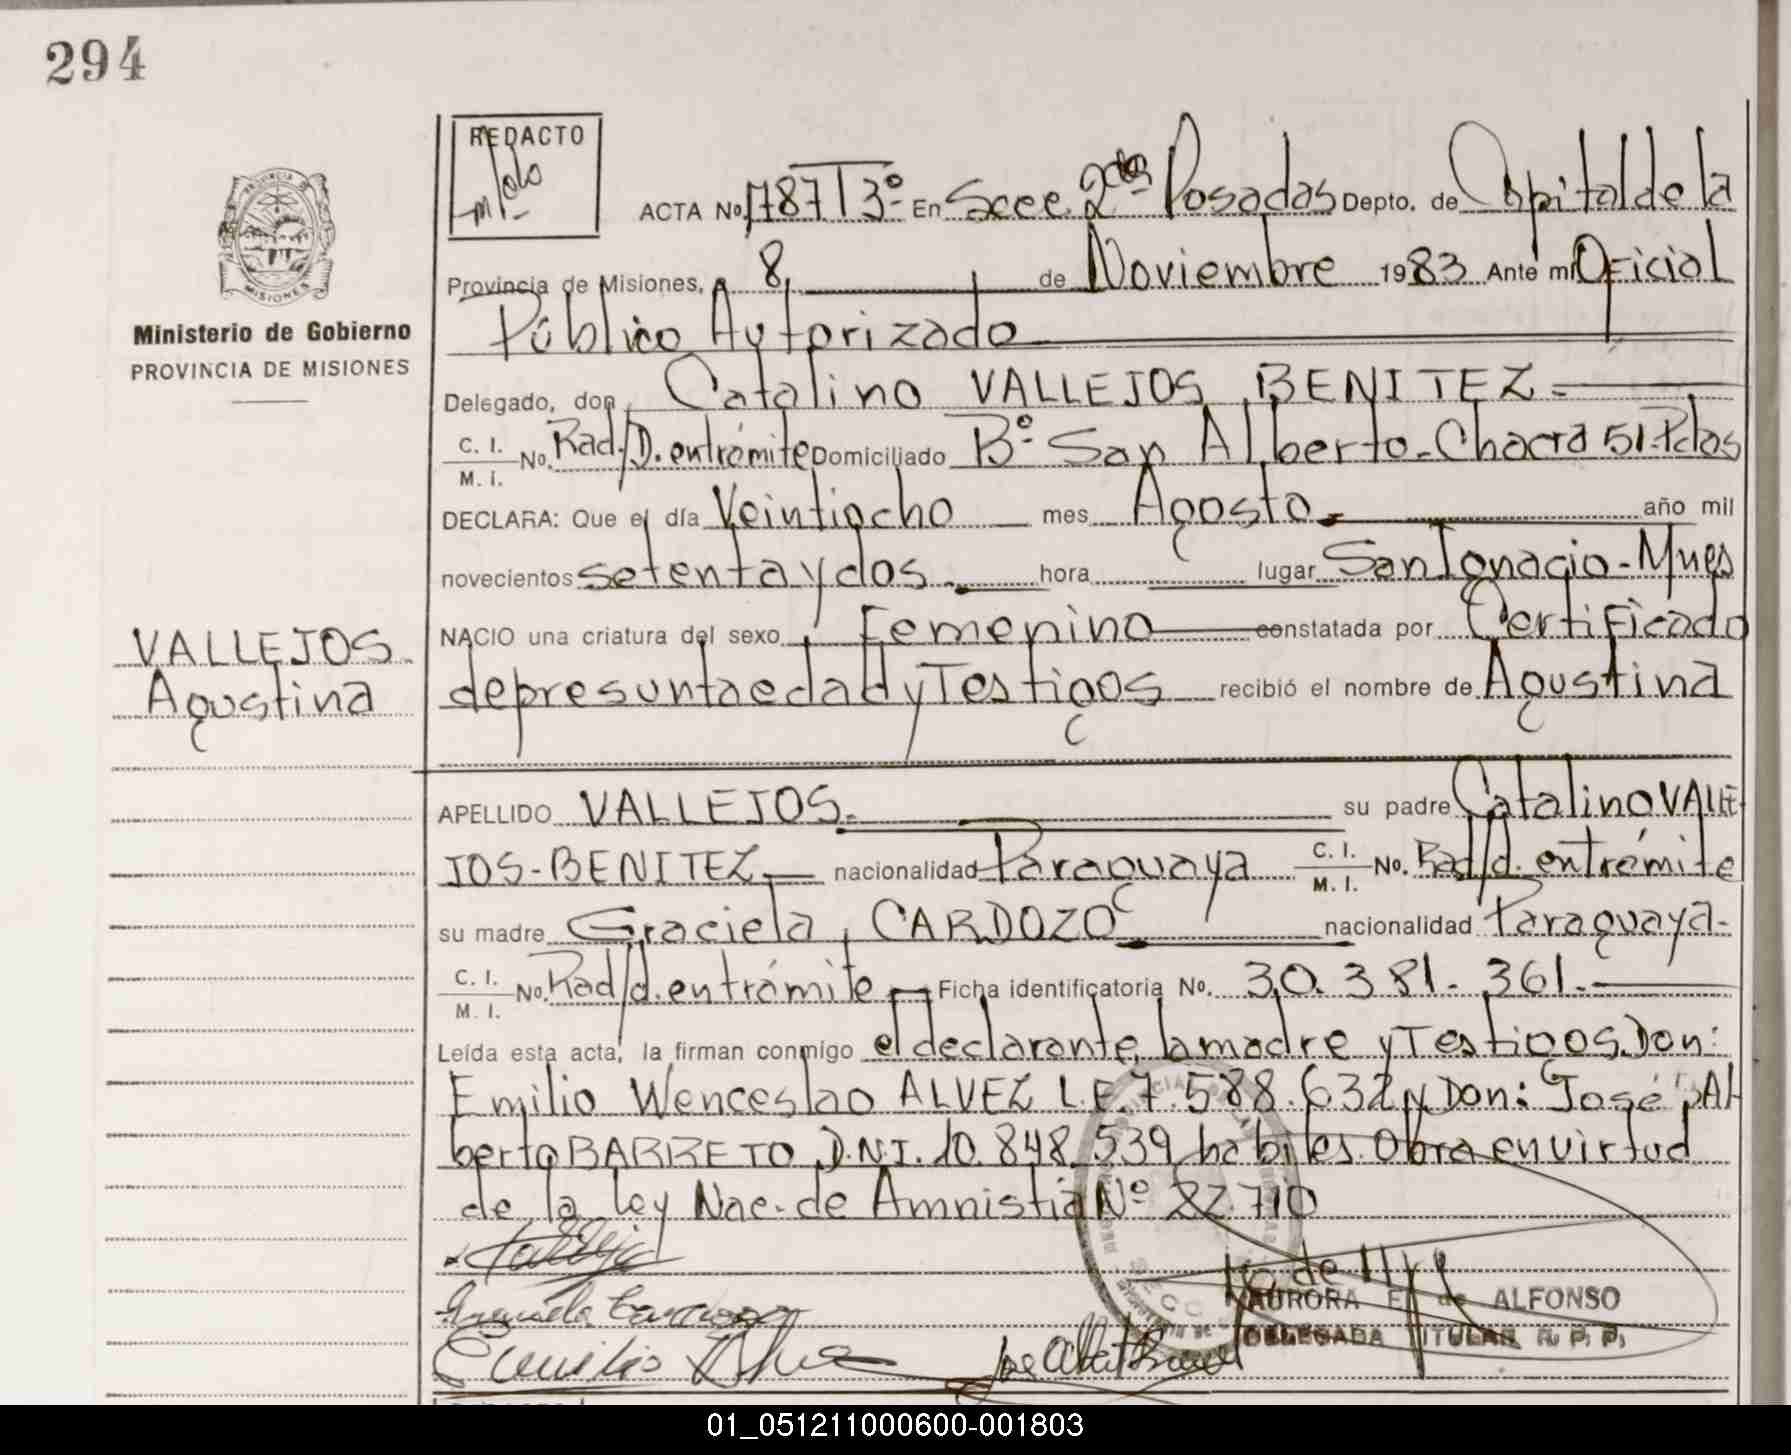 294
REDACTO
PROVINCIA DE
MISIONES
Ministerio de Gobierno
PROVINCIA DE MISIONES
ACTA No. 1787 T 3º En Scce. 2da Posadas Depto. de Capital de la
Provincia de Misiones, a 8 de Noviembre 1983 Ante mí Oficial
Público Autorizado
Delegado, don Catalino VALLEJOS BENITEZ.
C. I.
M. I. No. Rad./D. entrámite Domiciliado Bº San Alberto-Chacra 51-Pdas
DECLARA: Que el día Veintiocho mes Agosto. año mil
novecientos setenta y dos. hora lugar San Ignacio-Mnes
NACIO una criatura del sexo Femenino constatada por Certificado
VALLEJOS
Agustina
de presunta edad y Testigos recibió el nombre de Agustina
APELLIDO VALLEJOS. su padre Catalino VALLE
JOS-BENITEZ nacionalidad Paraguaya C. I.
M. I. No. Rad/d. entrámite
su madre Graciela, CARDOZO nacionalidad Paraguaya-
C. I.
M. I. No. Rad/d. entrámite Ficha identificatoria No. 30.381.361.-
Leída esta acta, la firman conmigo el declarante, la madre y Testigos. Don:
Emilio Wenceslao ALVEZ L.E. 7.588.632 y Don: José Al
berto BARRETO D.N.I. 10.848.539 habiles. Obra en virtud
de la ley Nac. de Amnistia Nº 22.710
AURORA E. de ALFONSO
DELEGADA TITULAR R. P. P.
01_051211000600-001803